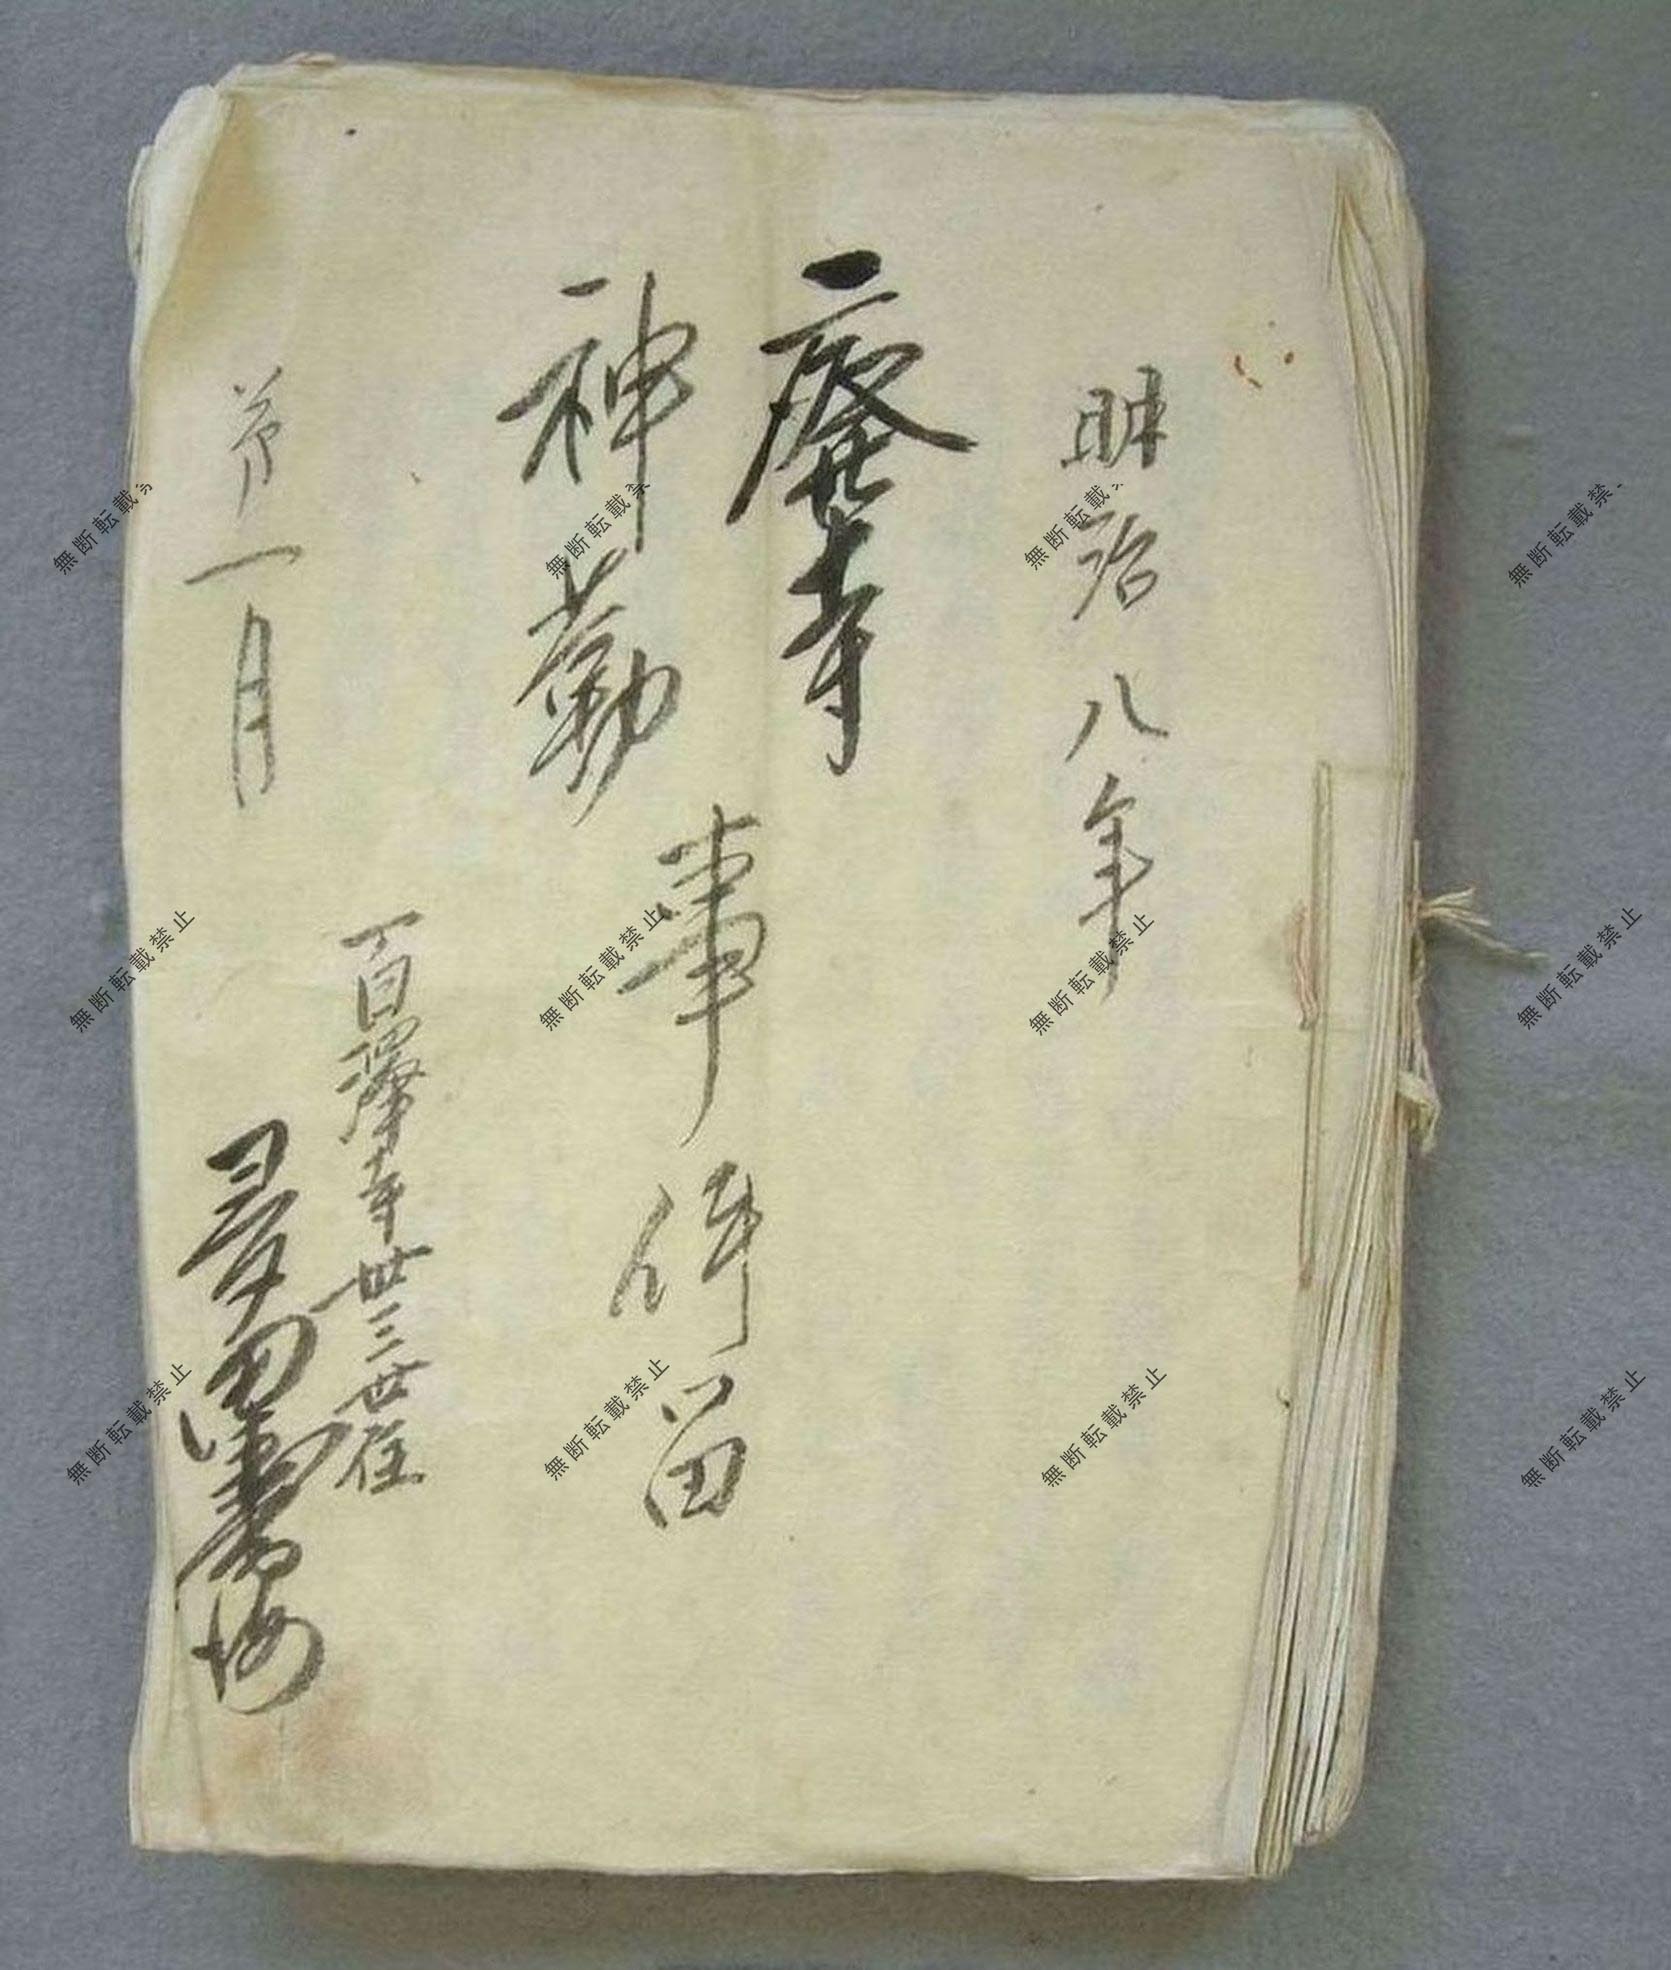 明治八年
廢寺
神勤
事件留
第一月
百澤寺丗三世住
無断転載禁
無断転載禁
無断転載禁
無断転載禁
無断転載禁止
無断転載禁止
無断転載禁止
無断転載禁止
無断転載禁止
無断転載禁止
無断転載禁止
無断転載禁止